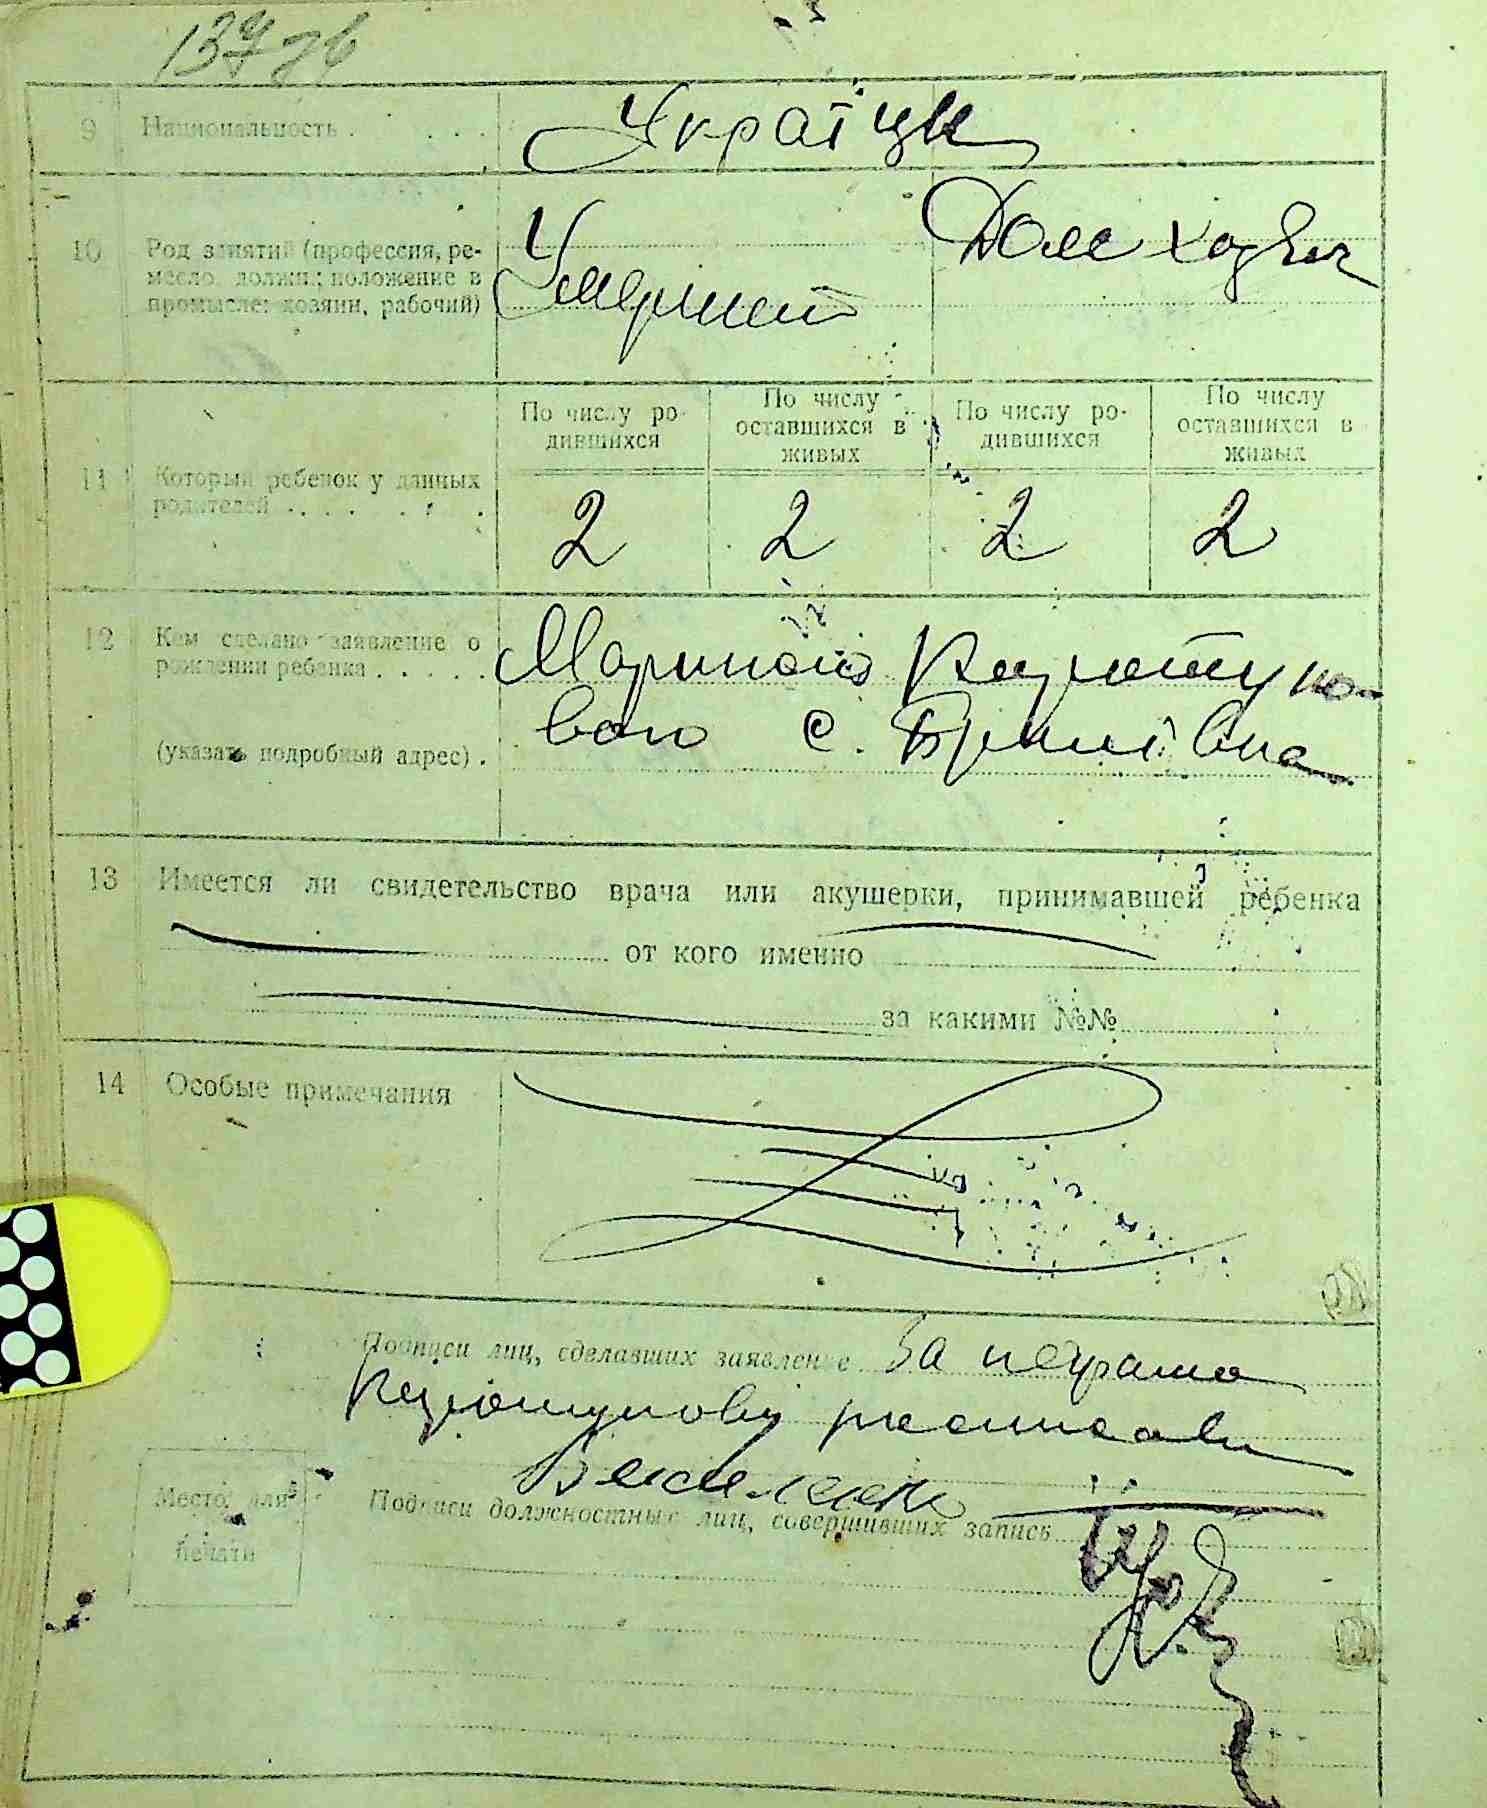 9 Национальность . . . . Українці
10 Род занятий (профессия, ре-
месло, должн.; положение в
промысле: хозяин, рабочий)
Умерший
Дом хозяй
По числу ро-
дившихся
По числу
оставшихся в
живых
По числу ро-
дившихся
По числу
оставшихся в
живых
11 Который ребенок у данных
родителей . . . . . .
2 2 2 2
12 Кем сделано заявление о
рождении ребенка . . . . .
(указать подробный адрес) .
Мариною
вою с.
13 Имеется ли свидетельство врача или акушерки, принимавшей ребенка
от кого именно
за какими №№
14 Особые примечания
Подписи лиц, сделавших заявление За неграмо
Место для
печати
Подписи должностных лиц, совершивших запись